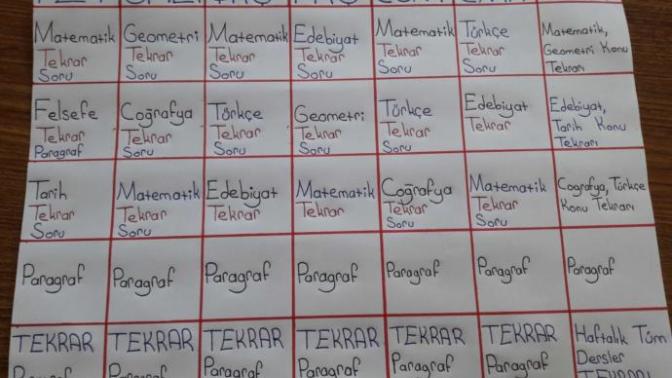 Matematik
Tekrar
Soru
Geometri
Tekrar
Soru
Matematik
Tekrar
Soru
Edebiyat
Tekrar
Soru
Matematik
Tekrar
Soru
Türkçe
Tekrar
Soru
Matematik,
Geometri Konu
Tekrarı
Felsefe
Tekrar
Paragraf
Coğrafya
Tekrar
Soru
Türkçe
Tekrar
Soru
Geometri
Tekrar
Soru
Türkçe
Tekrar
Soru
Edebiyat
Tekrar
Edebiyat,
Tarih Konu
Tekrarı
Tarih
Tekrar
Soru
Matematik
Tekrar
Soru
Edebiyat
Tekrar
Matematik
Tekrar
Coğrafya
Tekrar
Soru
Matematik
Tekrar
Soru
Cografya, Türkçe
Konu Tekrarı
Paragraf
Paragraf
Paragraf
Paragraf
Paragraf
Paragraf
Paragraf
TEKRAR
Paragraf
TEKRAR
Paragraf
TEKRAR
Paragraf
TEKRAR
Paragraf
TEKRAR
Paragraf
TEKRAR
Paragraf
Haftalık Tüm
Dersler
TEKRARI